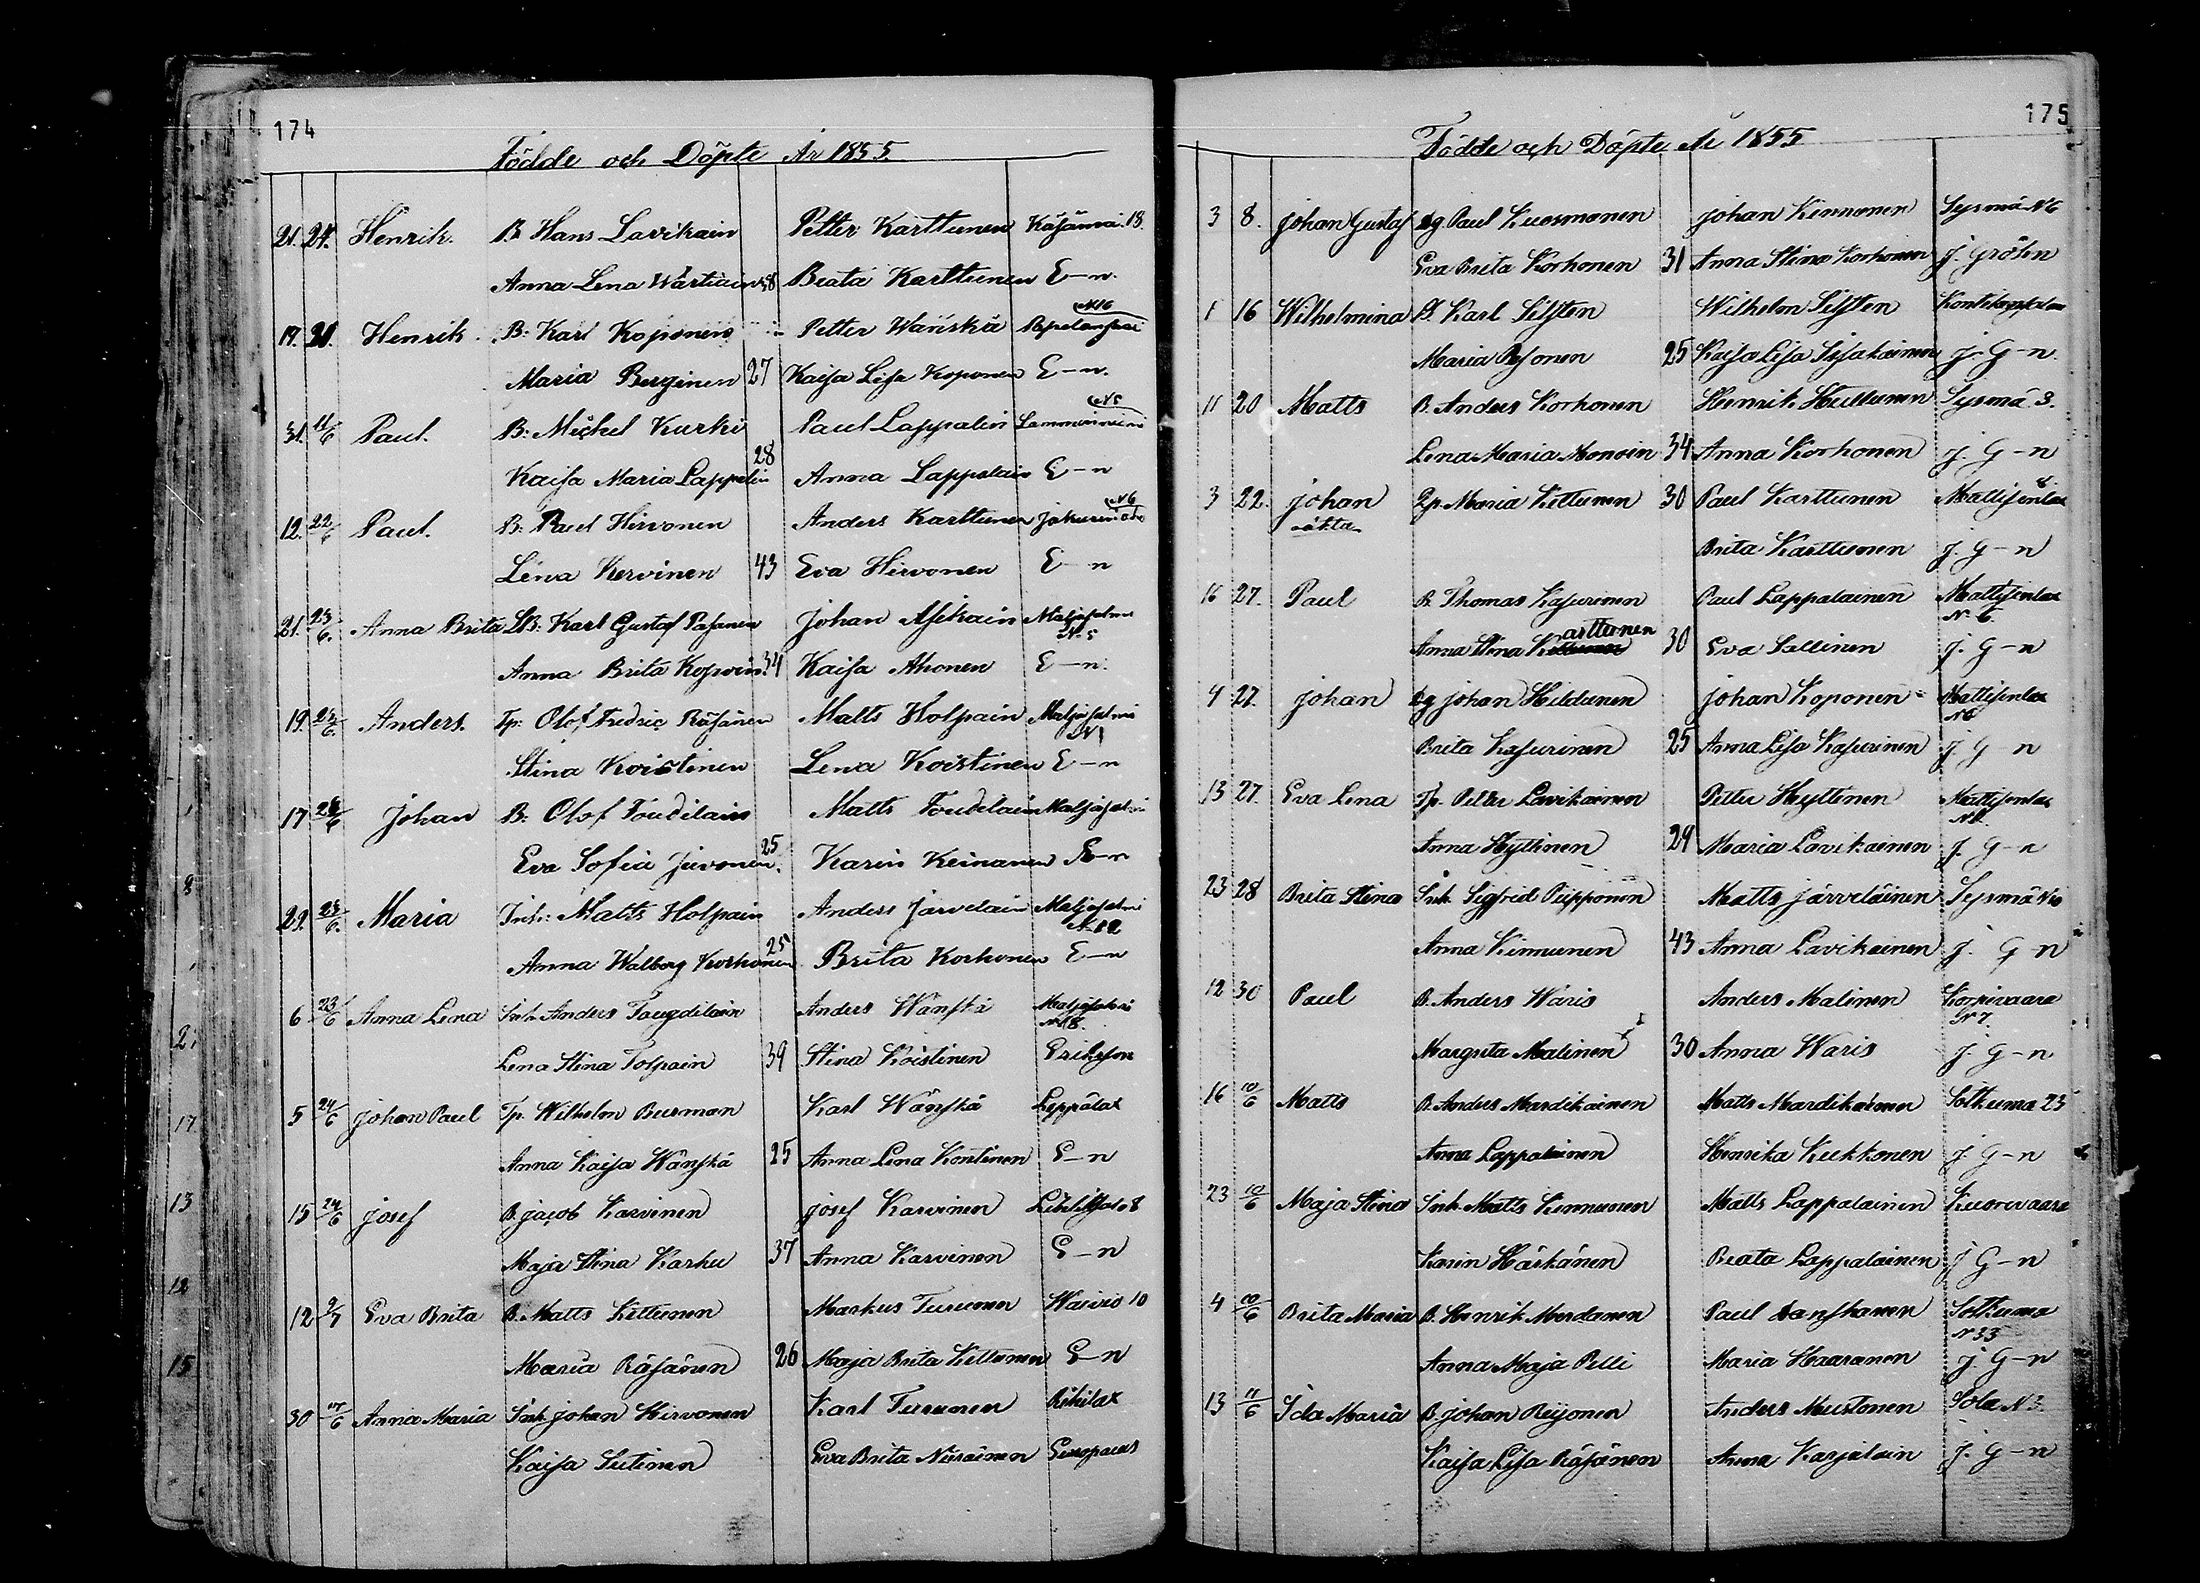 174
Födde och Döpte År 1855
21. 24. Henrik. B. Hans Lavikain Petter Karttunen Käsämä 18.
Anna Lena Wärtiäinen 38 Beata Karttunen E-n.
17. 21. Henrik. B: Karl Koponen Petter Wänskä N16
Maria Berginen 27 Kaisa Lisa Koponen E-n.
31. 11/6 Paul. B: Michel Kurki Paul Lappalin N5
Kaisa Maria Lappalin 28 Anna Lappalain E-n
12. 22/6 Paul. B: Paul Hirvonen Anders Karttunen N6
Lena Kervinen 43 Eva Hirvonen E-n
21. 23/6. Anna Brita LB: Karl Gustaf Pasanen Johan Asikain Maljasalmi N. 5
Anna Brita Kopoin. 34 Kaisa Ahonen E-n.
19. 23/6. Anders. Tp. Olof Fredric Räsänen Matts Holpain Maljasalmi N1
Stina Koistinen Lena Koistinen E-n
17 23/6 Johan B: Olof Toudilain Matts Toudilain Maljasalmi
Eva Sofia Juvonen. 25 Karin Keinanen E-n
29. 23/6. Maria Inh: Matts Holpain Anders Järvelain Maljasalmi N12
Anna Walborg Korhonen 25 Brita Korhonen E-n
6 23/6 Anna Lena Inh. Anders Tougdilain Anders Wänskä Maljasalmi N18.
Lena Stina Tolpain 39 Stina Koistinen Eriksson
5 24/6 Johan Paul Tp. Wilhelm Burman Karl Wänskä Leppälax
Anna Kaisa Wänskä 25 Anna Lena Kontinen E-n
15 24/6 Josef B. Jacob Karvinen Josef Karvinen 8
Maja Stina Karhu 37 Anna Karvinen E-n
12 9/7 Eva Brita B. Matts Kettunen Markus Turunen Waivio 10
Maria Räsänen 26 Maja Brita Kettunen E-n
30 17/6 Anna Maria Inh. Johan Hirvonen Karl Turunen Rihilax
Kaisa Sutinen Eva Brita Niiranen Europaeus
175
Födde och Döpte År 1855
3 8. Johan Gustaf dg. Paul Kuosmanen Johan Kinnonen Sysmä N6
Eva Brita Korhonen 31 Anna Stina Korhonen J. Gröhn
1 16 Wilhelmina B. Karl Sissten Wilhelm Sissten Kontkappalen
Maria 25 Kaisa Lisa J. G-n.
11 20 Matts B. Anders Korhonen Henrik Huttunen Sysmä 3.
Lena Maria Monoin 34 Anna Korhonen J. G-n
3 22. Johan Pp. Maria Kettunen 30 Paul Karttunen Mattisenlax
oäkta
Brita Karttunen J. G-n
16 27. Paul B. Thomas Kasurinen Paul Lappalainen Mattisenlax N. 6.
Anna Stina Karttunen 30 Eva Sallinen J. G-n
4 27. Johan dg Johan Hiltunen Johan Koponen Mattisenlax N6
Brita Kasurinen 25 Anna Lisa Kasurinen J G-n
13 27. Eva Lena Tp. Petter Lavikainen Petter Hyttinen Mattisenlax N2.
Anna Hyttinen 29 Maria Lavikainen J. G-n
23 28 Brita Stina Inh. Sigfrid Piipponen Matts Järveläinen Sysmä N10
Anna Kinnunen 43 Anna Lavikainen J. G-n
12 30 Paul B. Anders Waris Anders Malinen Korpivaara N7.
Margreta Malinen 30 Anna Waris J. G-n
16 10/6 Matts B. Anders Mardikainen Matts Mardikainen Sotkuma 23
Anna Lappalainen Henrika Kukkonen J G-n
23 10/6 Maja Stina Inh. Matts Kinnunen Matts Lappalainen Kuorevaara
Karin Härkänen Beata Lappalainen J G-n
4 10/6 Brita Maria B. Henrik Mordanen Paul Sotkuma N33
Anna Maja Pelli Maria Haaranen J. G-n
13 11/6 Ida Maria B. Johan Reijonen Anders Mustonen Sola N3.
Kaisa Lisa Räsänen Anna Karjalain J. G-n